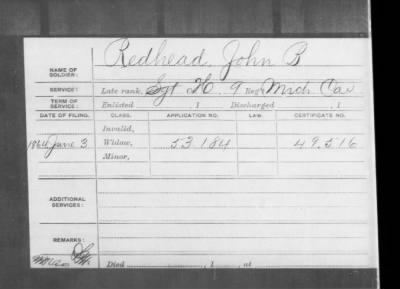 NAME OF SOLDIER: Redhead, John B
SERVICE: Late rank, Sgt H. 9 Reg't Mich Cav
TERM OF SERVICE: Enlisted , 1 Discharged , 1
DATE OF FILING. CLASS. APPLICATION NO. LAW. CERTIFICATE NO.
Invalid,
1864 June 3 Widow, 53184 49.516
Minor,
ADDITIONAL SERVICES:
REMARKS:
Died , 1 , at